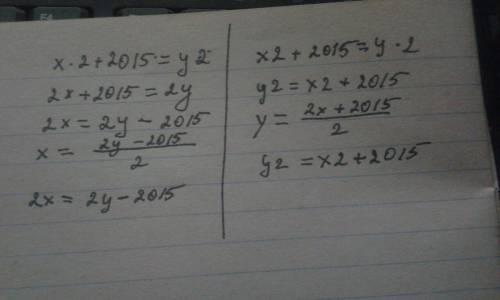 x·2+2015=y2
2x+2015=2y
2x=2y-2015
x=(2y-2015)/2
2x=2y-2015
x2+2015=y·2
y2=x2+2015
y=(2x+2015)/2
y2=x2+2015